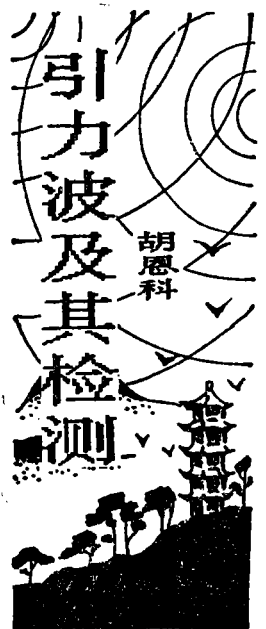 引力波及其检测
胡恩科